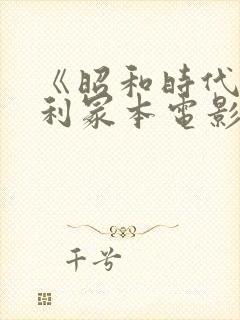 《昭和時代
利冢本電影
千兮